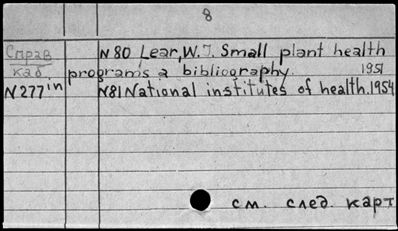 8
Справ N80 Lear, W. J. Small plant health
каб. programs a bibliography. 1951
N277in N81 National institutes of health. 1954
см. след. карт